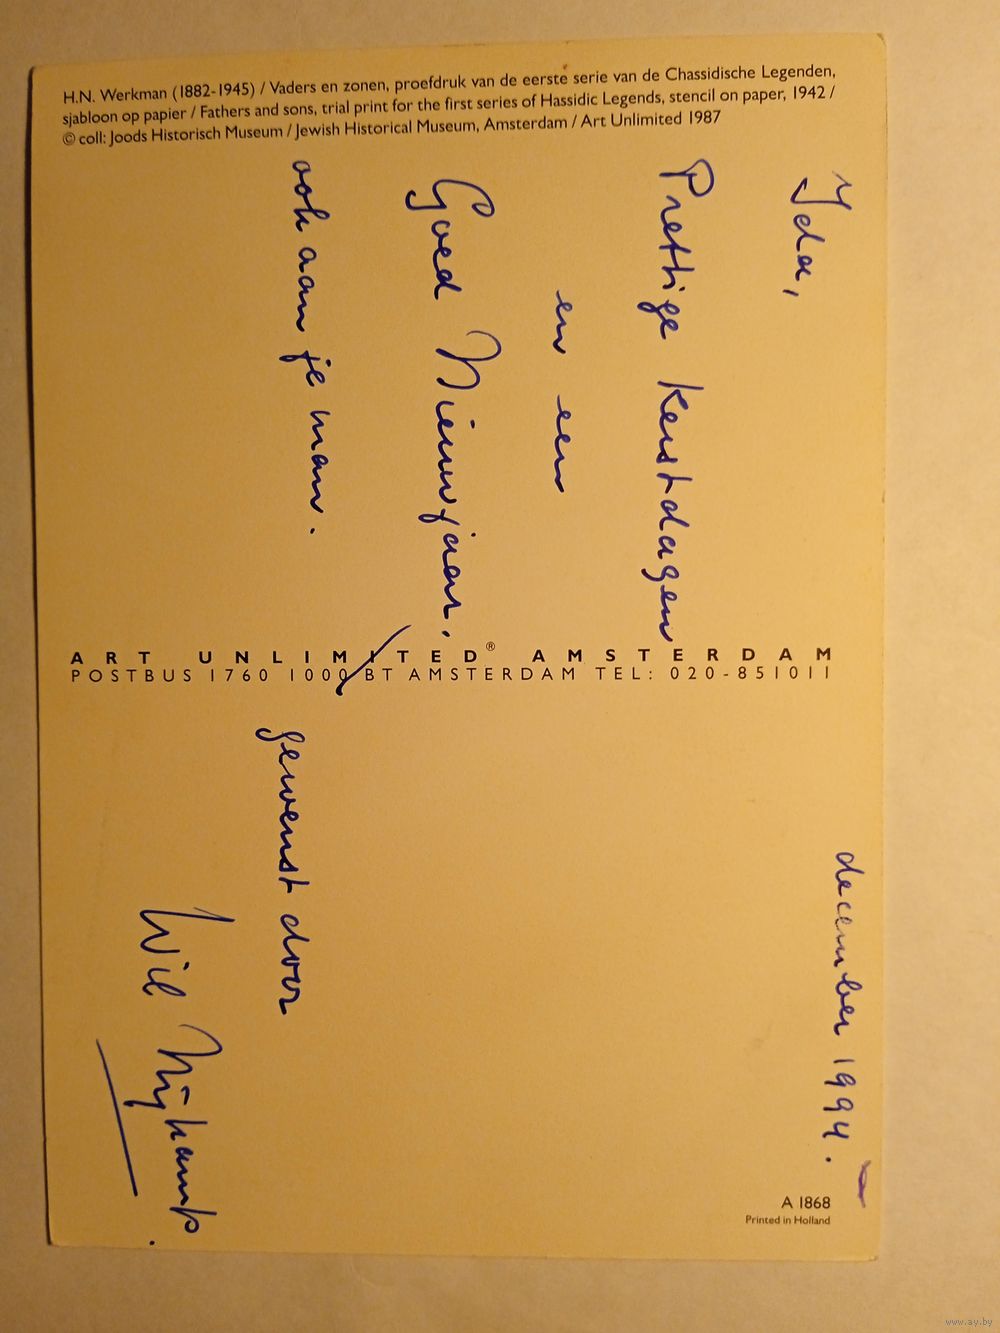 H.N. Werkman (1882-1945) / Vaders en zonen, proefdruk van de eerste serie van de Chassidische Legenden,
sjabloon op papier / Fathers and sons, trial print for the first series of Hassidic Legends, stencil on paper, 1942 /
© coll: Joods Historisch Museum / Jewish Historical Museum, Amsterdam / Art Unlimited 1987
december 1994.
Ida,
Prettige kerstdagen
en een
Goed Nieuwjaar,
ook aan je man.
gewenst door
Wil Nijkamp.
ART UNLIMITED® AMSTERDAM
POSTBUS 1760 1000 BT AMSTERDAM TEL: 020-851011
A 1868
Printed in Holland
www.ay.by